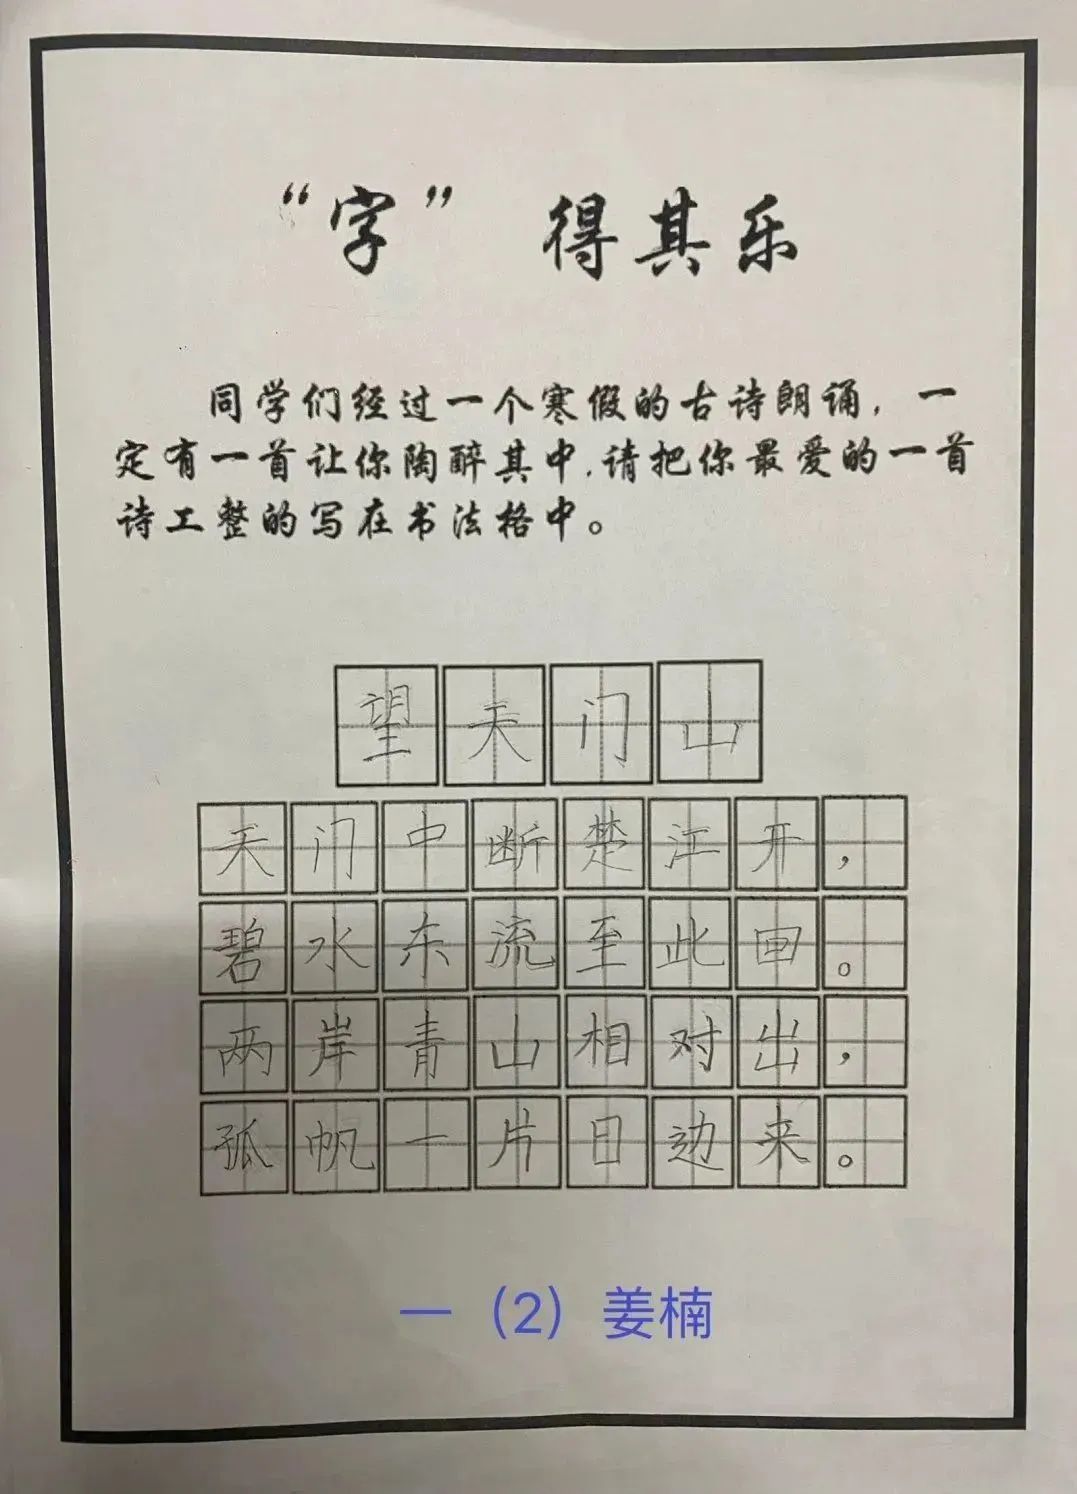 “字” 得其乐
同学们经过一个寒假的古诗朗诵，一
定有一首让你陶醉其中，请把你最爱的一首
诗工整的写在书法格中。
望天门山
天门中断楚江开，
碧水东流至此回。
两岸青山相对出，
孤帆一片日边来。
一（2）姜楠